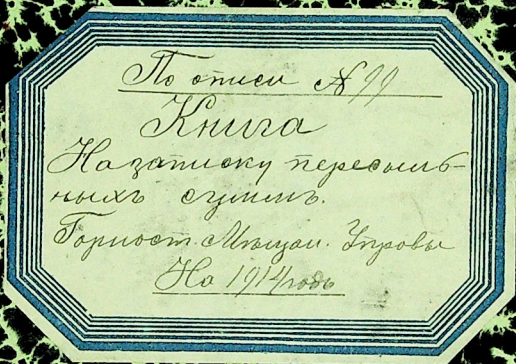 По описи № 99
Книга
На записку пересыль-
ныхъ суммъ.
Горност. Мѣщан. Управы
На 1914 годъ